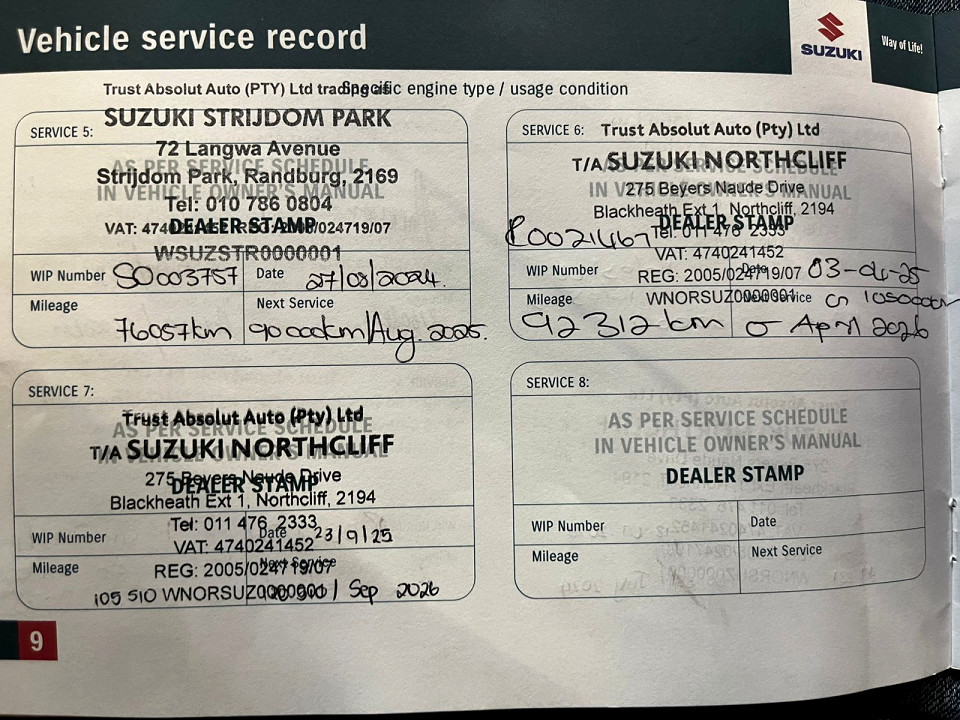 Vehicle service record
SUZUKI
Way of Life!
Trust Absolut Auto (PTY) Ltd trading as
Specific engine type / usage condition
SERVICE 5:
SUZUKI STRIJDOM PARK
72 Langwa Avenue
AS PER SERVICE SCHEDULE
Strijdom Park, Randburg, 2169
IN VEHICLE OWNER'S MANUAL
Tel: 010 786 0804
DEALER STAMP
VAT: 4740241452 REG: 2005/024719/07
WSUZSTR0000001
WIP Number SO003757
Date 27/08/2024.
Mileage
Next Service
76057km
90000km/Aug. 2025.
SERVICE 6:
Trust Absolut Auto (Pty) Ltd
T/A SUZUKI NORTHCLIFF
AS PER SERVICE SCHEDULE
IN VEHICLE OWNER'S MANUAL
275 Beyers Naude Drive
Blackheath Ext 1, Northcliff, 2194
DEALER STAMP
Tel: 011 476 2333
R0021467
VAT: 4740241452
WIP Number
REG: 2005/024719/07
Date 03-04-25
Mileage
WNORSUZ0000001
Next Service
105000km
92312 km
April 2026
SERVICE 7:
Trust Absolut Auto (Pty) Ltd
AS PER SERVICE SCHEDULE
T/A SUZUKI NORTHCLIFF
IN VEHICLE OWNER'S MANUAL
275 Beyers Naude Drive
DEALER STAMP
Blackheath Ext 1, Northcliff, 2194
Tel: 011 476 2333
WIP Number
Date 23/9/25
VAT: 4740241452
Mileage
REG: 2005/024719/07
Next Service
105 510
WNORSUZ0000001
/ Sep 2026
SERVICE 8:
AS PER SERVICE SCHEDULE
IN VEHICLE OWNER'S MANUAL
DEALER STAMP
WIP Number
Date
Mileage
Next Service
9